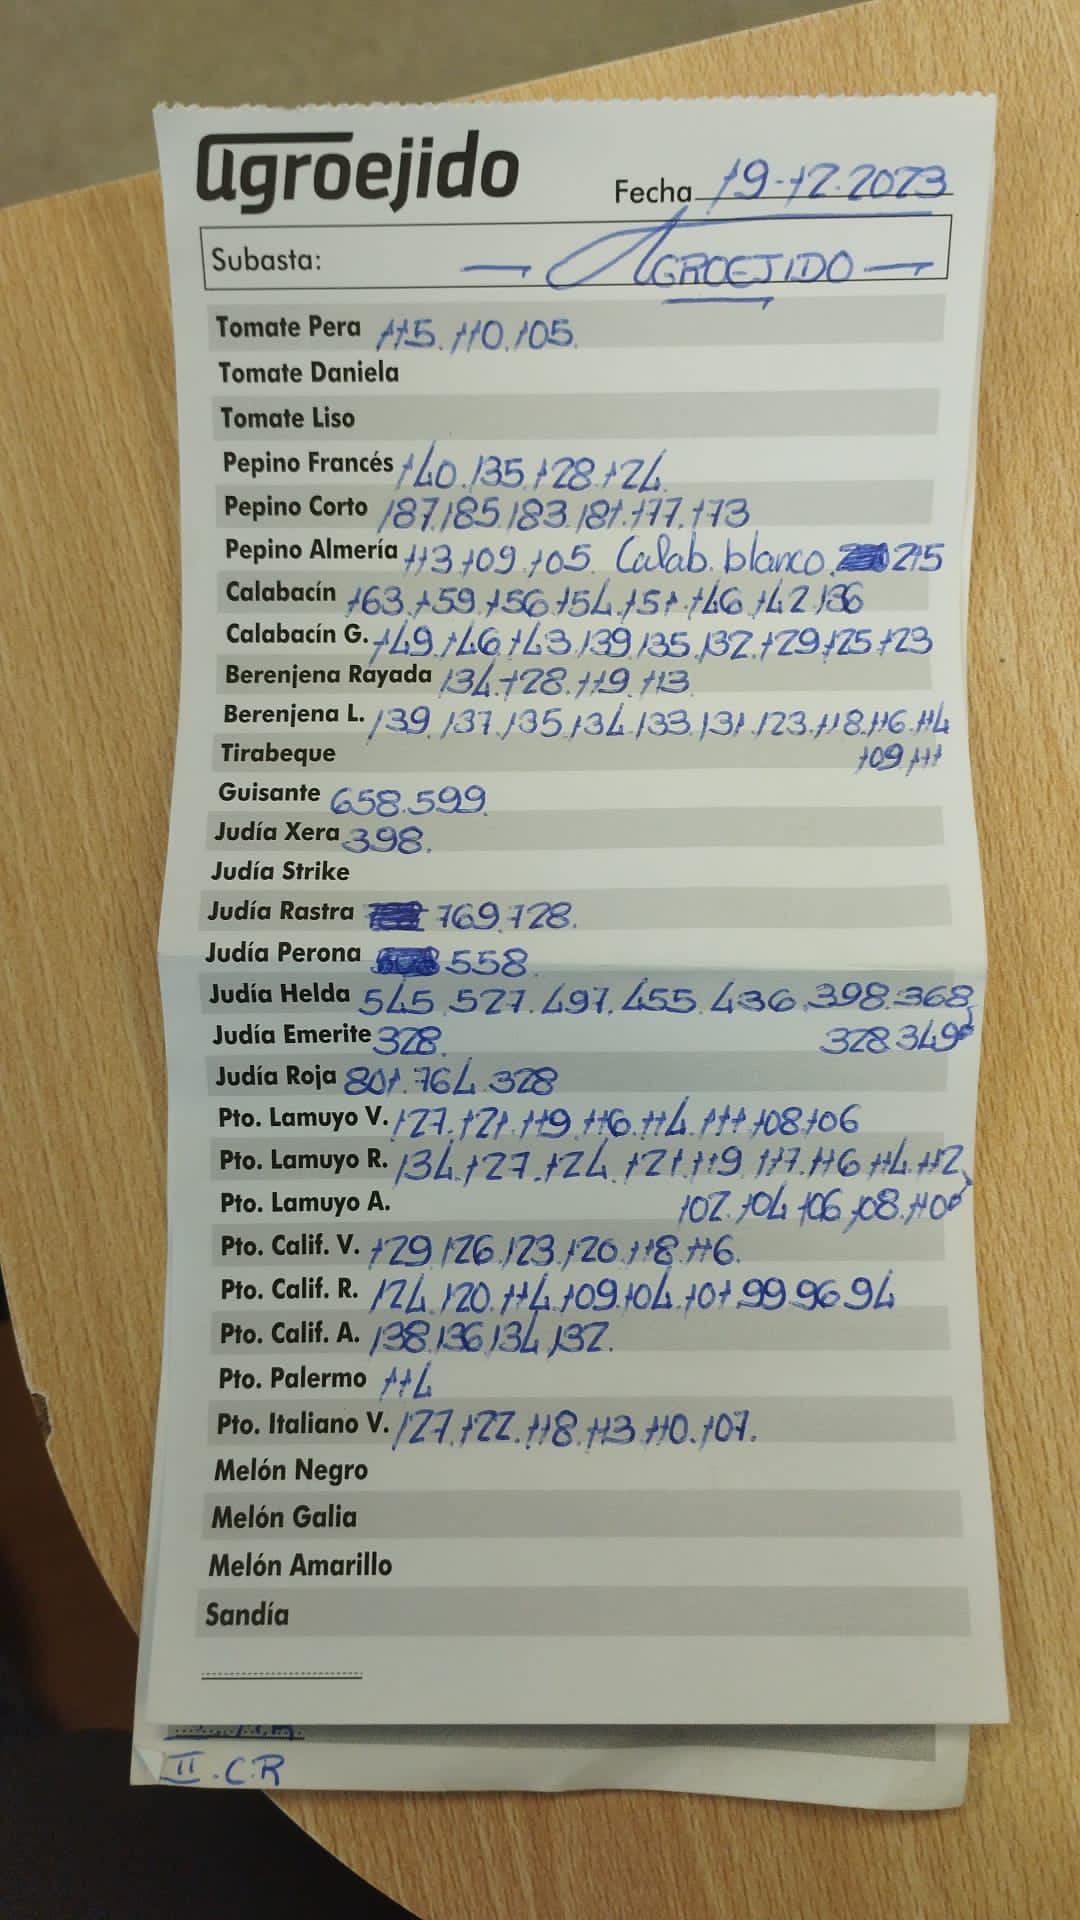 agroejido
Fecha 19-12-2023
Subasta: — AGROEJIDO —
Tomate Pera 115.110.105.
Tomate Daniela
Tomate Liso
Pepino Francés 140.135.128.124
Pepino Corto 187.185.183.181.177.173
Pepino Almería 113.109.105. Calab. blanco. 215
Calabacín 163.159.156.154.151.146.142.136
Calabacín G. 149.146.143.139.135.132.129.125.123
Berenjena Rayada 134.128.119.113
Berenjena L. 139.137.135.134.133.131.123.118.116.114
Tirabeque 109.111
Guisante 658.599.
Judía Xera 398.
Judía Strike
Judía Rastra 769.728.
Judía Perona 558.
Judía Helda 545.527.497.455.436.398.368
Judía Emerite 328. 328.349
Judía Roja 801.764.328
Pto. Lamuyo V. 127.121.119.116.114.111.108.106
Pto. Lamuyo R. 134.127.124.121.119.117.116.114.112
Pto. Lamuyo A. 102.104.106.108.110
Pto. Calif. V. 129.126.123.120.118.116.
Pto. Calif. R. 124.120.114.109.104.101.99.96.94
Pto. Calif. A. 138.136.134.132.
Pto. Palermo 114
Pto. Italiano V. 127.122.118.113.110.107.
Melón Negro
Melón Galia
Melón Amarillo
Sandía
II.CR